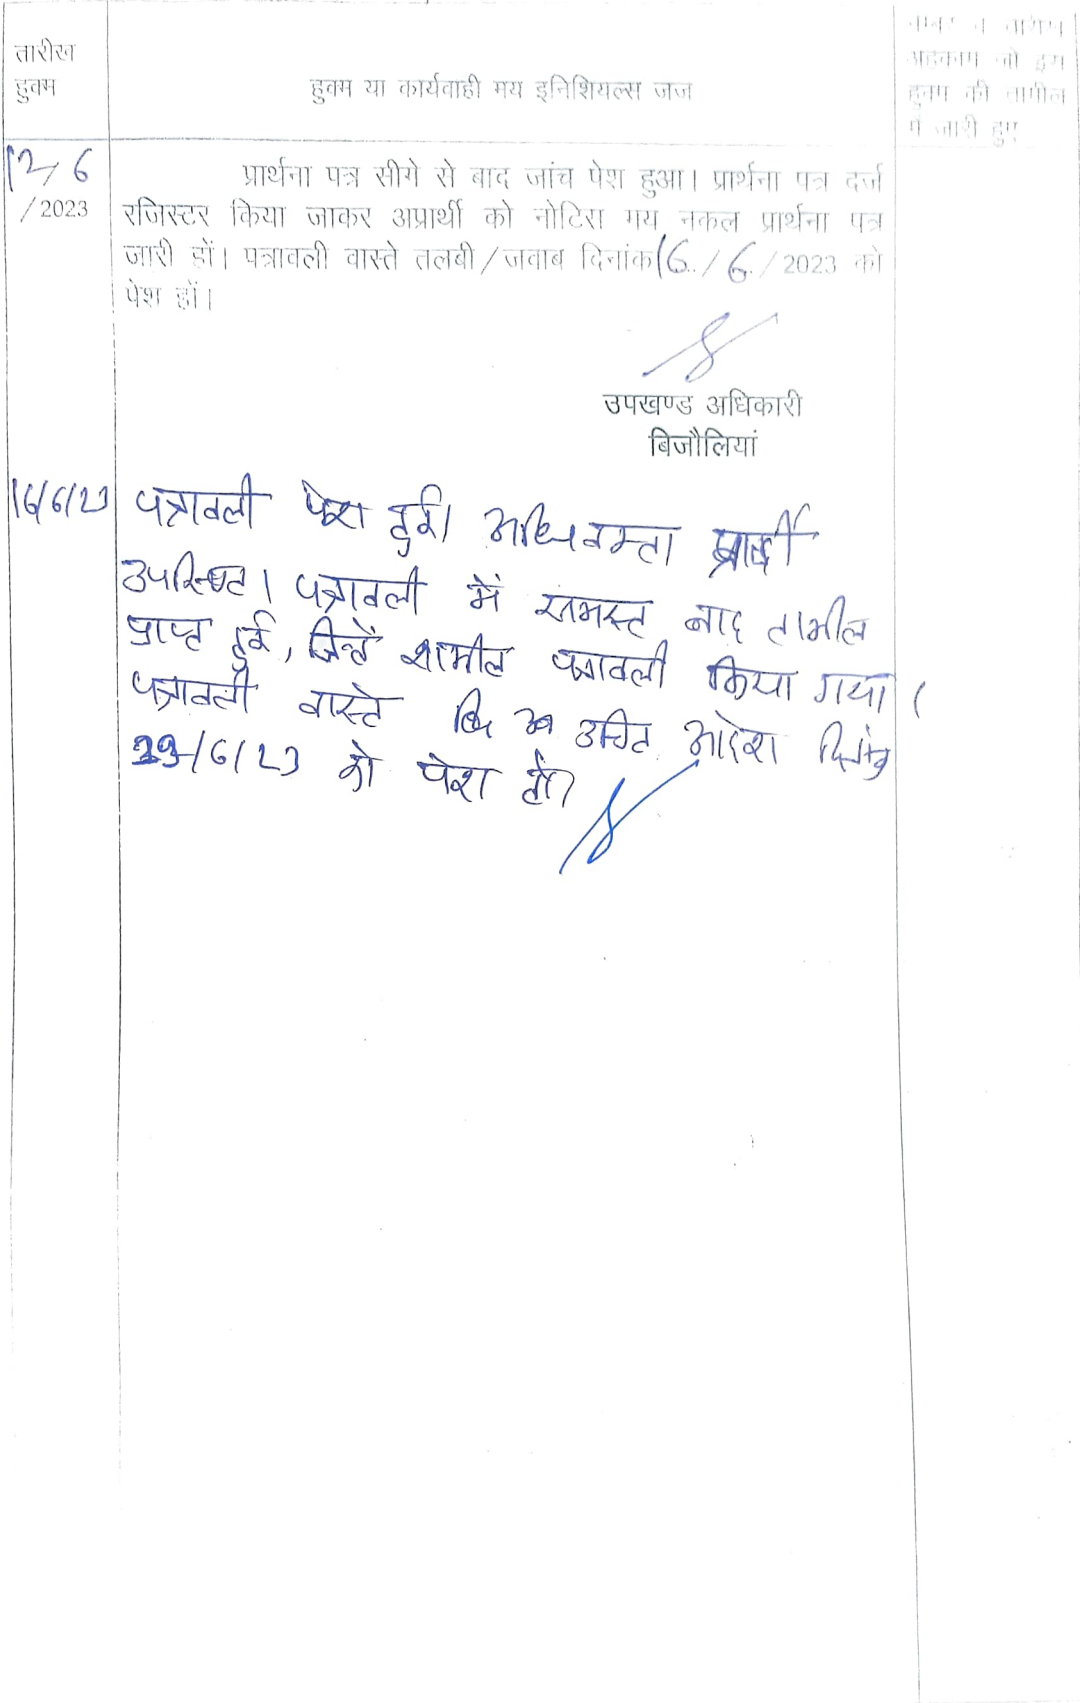 तारीख
हुक्म
हुक्म या कार्यवाही मय इनिशियल्स जज
नम्बर व तारीख
अहकाम जो इस
हुक्म की तामील
में जारी हुए
12/6
/2023
प्रार्थना पत्र सीगे से बाद जांच पेश हुआ। प्रार्थना पत्र दर्ज
रजिस्टर किया जाकर अप्रार्थी को नोटिस मय नकल प्रार्थना पत्र
जारी हों। पत्रावली वास्ते तलबी/जवाब दिनांक 16/6/2023 को
पेश हों।
उपखण्ड अधिकारी
बिजौलियां
16/6/23
पत्रावली पेश हुई। अधिवक्ता प्रार्थी
उपस्थित। पत्रावली में समस्त बाद तामील
प्राप्त हुई, जिन्हें शामील पत्रावली किया गया।
पत्रावली वास्ते उचित आदेश दिनांक
/6/23 को पेश हो।